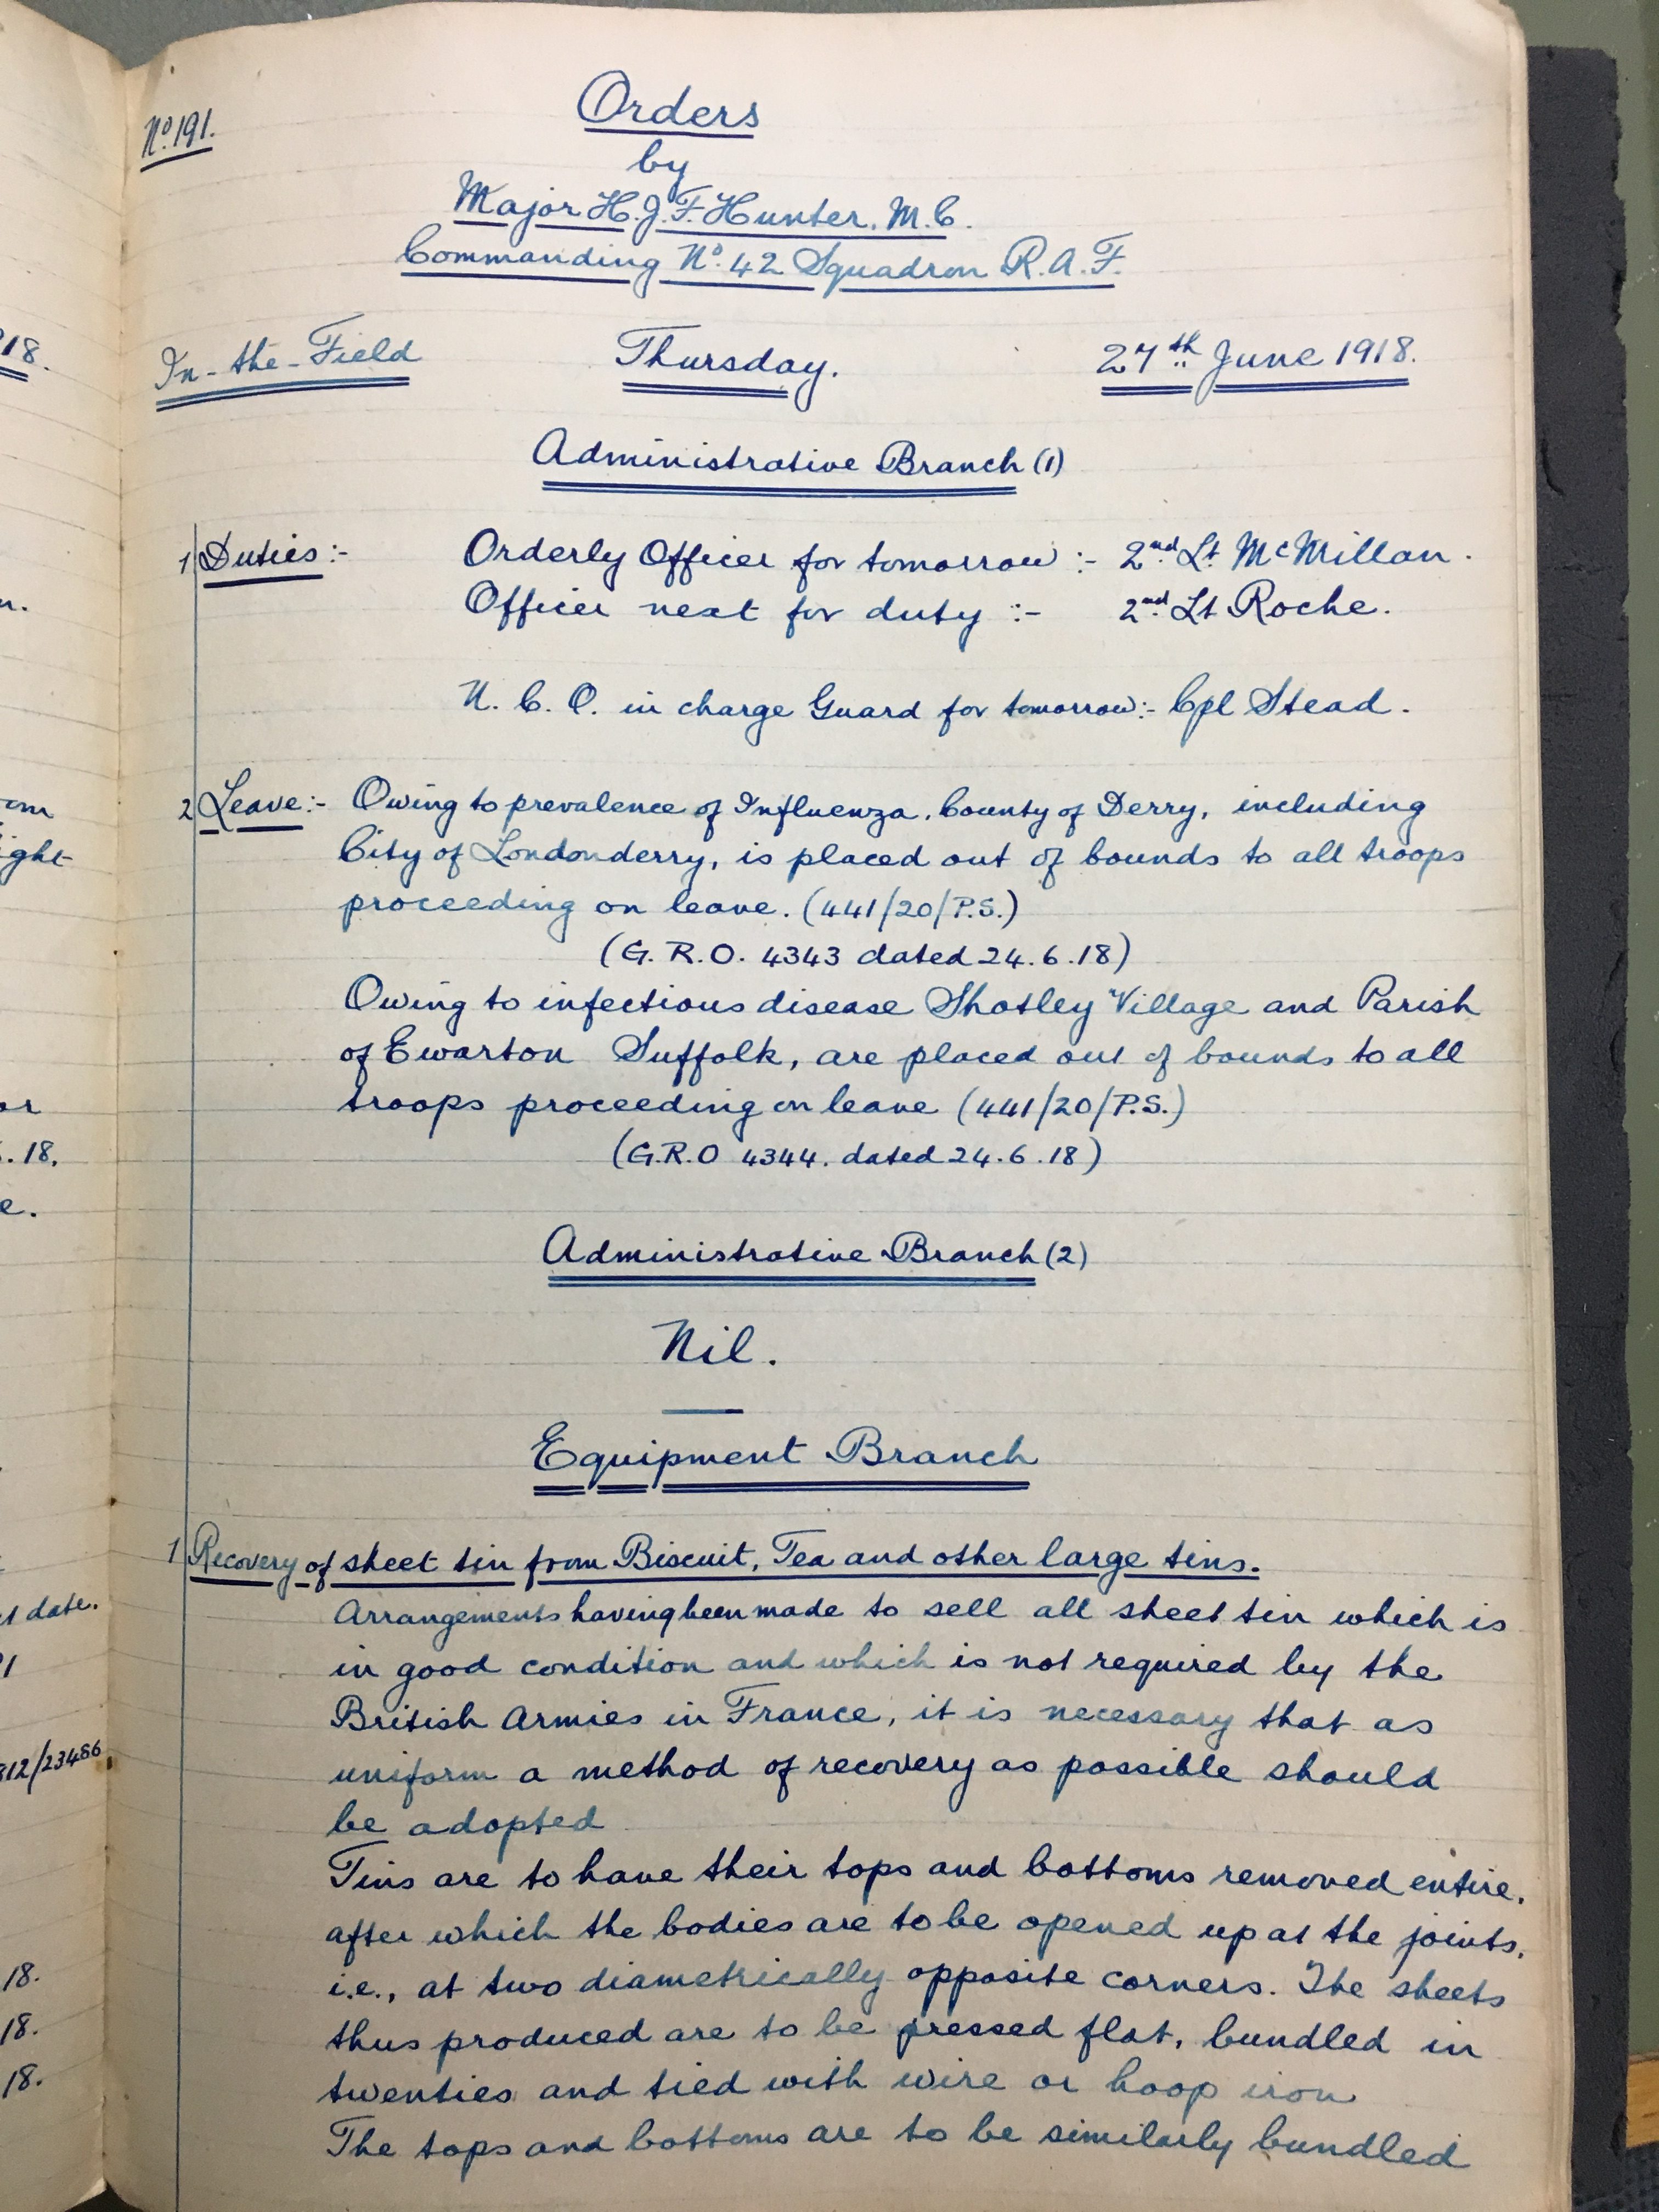 18.
n.
om
ight
or
. 18.
e.
st date.
312/23486
18.
18.
18.
No. 191.
Orders
by
Major H.J.F. Hunter. M.C.
Commanding No. 42 Squadron R.A.F.
In-the-Field Thursday. 27th June 1918.
Administrative Branch (1)
1 Duties:- Orderly Officer for tomorrow :- 2nd Lt. McMillan.
Officer next for duty :- 2nd Lt Roche.
N.C.O. in charge Guard for tomorrow:- Cpl Stead.
2 Leave:- Owing to prevalence of Influenza, County of Derry, including
City of Londonderry, is placed out of bounds to all troops
proceeding on leave. (441/20/P.S.)
(G.R.O. 4343 dated 24.6.18)
Owing to infectious disease Shotley Village and Parish
of Ewarton Suffolk, are placed out of bounds to all
troops proceeding on leave (441/20/P.S.)
(G.R.O 4344. dated 24.6.18)
Administrative Branch (2)
Nil.
Equipment Branch
1 Recovery of sheet tin from Biscuit, Tea and other large tins.
Arrangements having been made to sell all sheet tin which is
in good condition and which is not required by the
British Armies in France, it is necessary that as
uniform a method of recovery as possible should
be adopted
Tins are to have their tops and bottoms removed entire,
after which the bodies are to be opened up at the joints,
i.e., at two diametrically opposite corners. The sheets
thus produced are to be pressed flat, bundled in
twenties and tied with wire or hoop iron
The tops and bottoms are to be similarly bundled